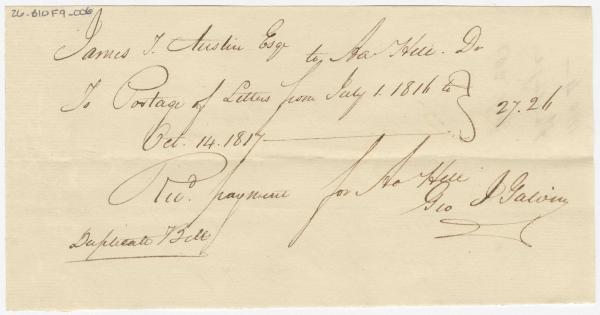 26-B10F9-006
James T. Austin Esqr to Aa Hill. Dr
To Postage of Letters from July 1. 1816 to
Oct. 14. 1817 27.26
Recd. payment for Aa Hill
Geo J Galvin
Duplicate Bill